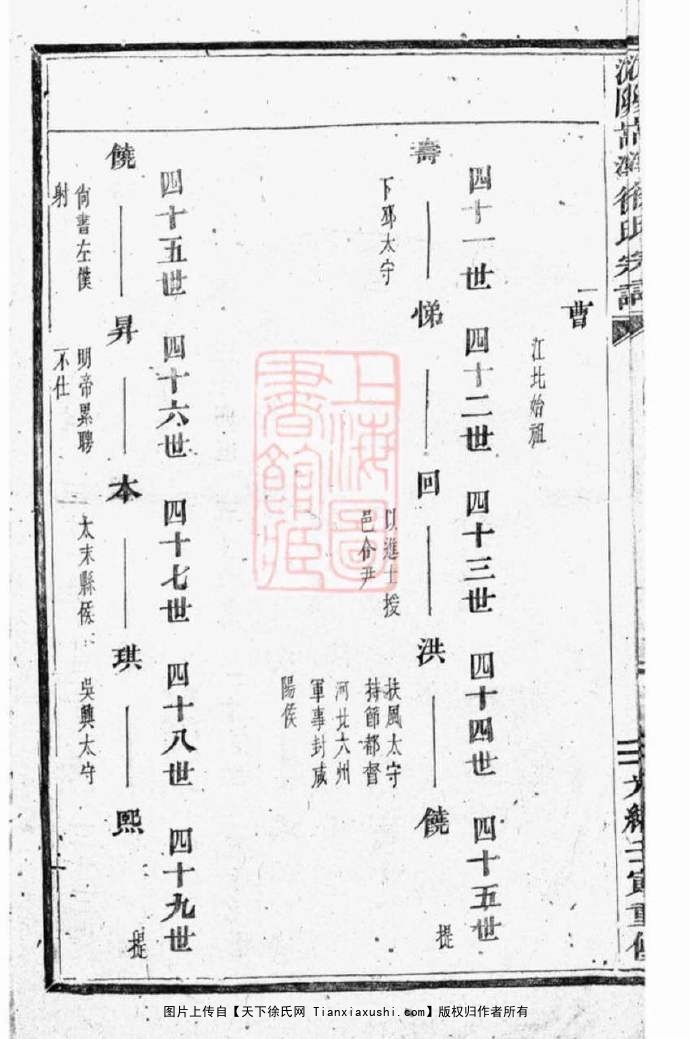 徐氏宗譜
光緒壬寅重修
一曹
江北始祖
四十一世 四十二世 四十三世 四十四世 四十五世
壽 悌 回 洪 饒
下邳太守
以進士授
邑令尹
扶風太守
持節都督
河北六州
軍事封咸
陽侯
提
四十五世 四十六世 四十七世 四十八世 四十九世
饒 昇 本 琪 熙
尙書左僕
射
明帝累聘
不仕
太末縣侯
吳興太守
提
上海圖
書館藏
图片上传自【天下徐氏网 Tianxiaxushi.com】版权归作者所有